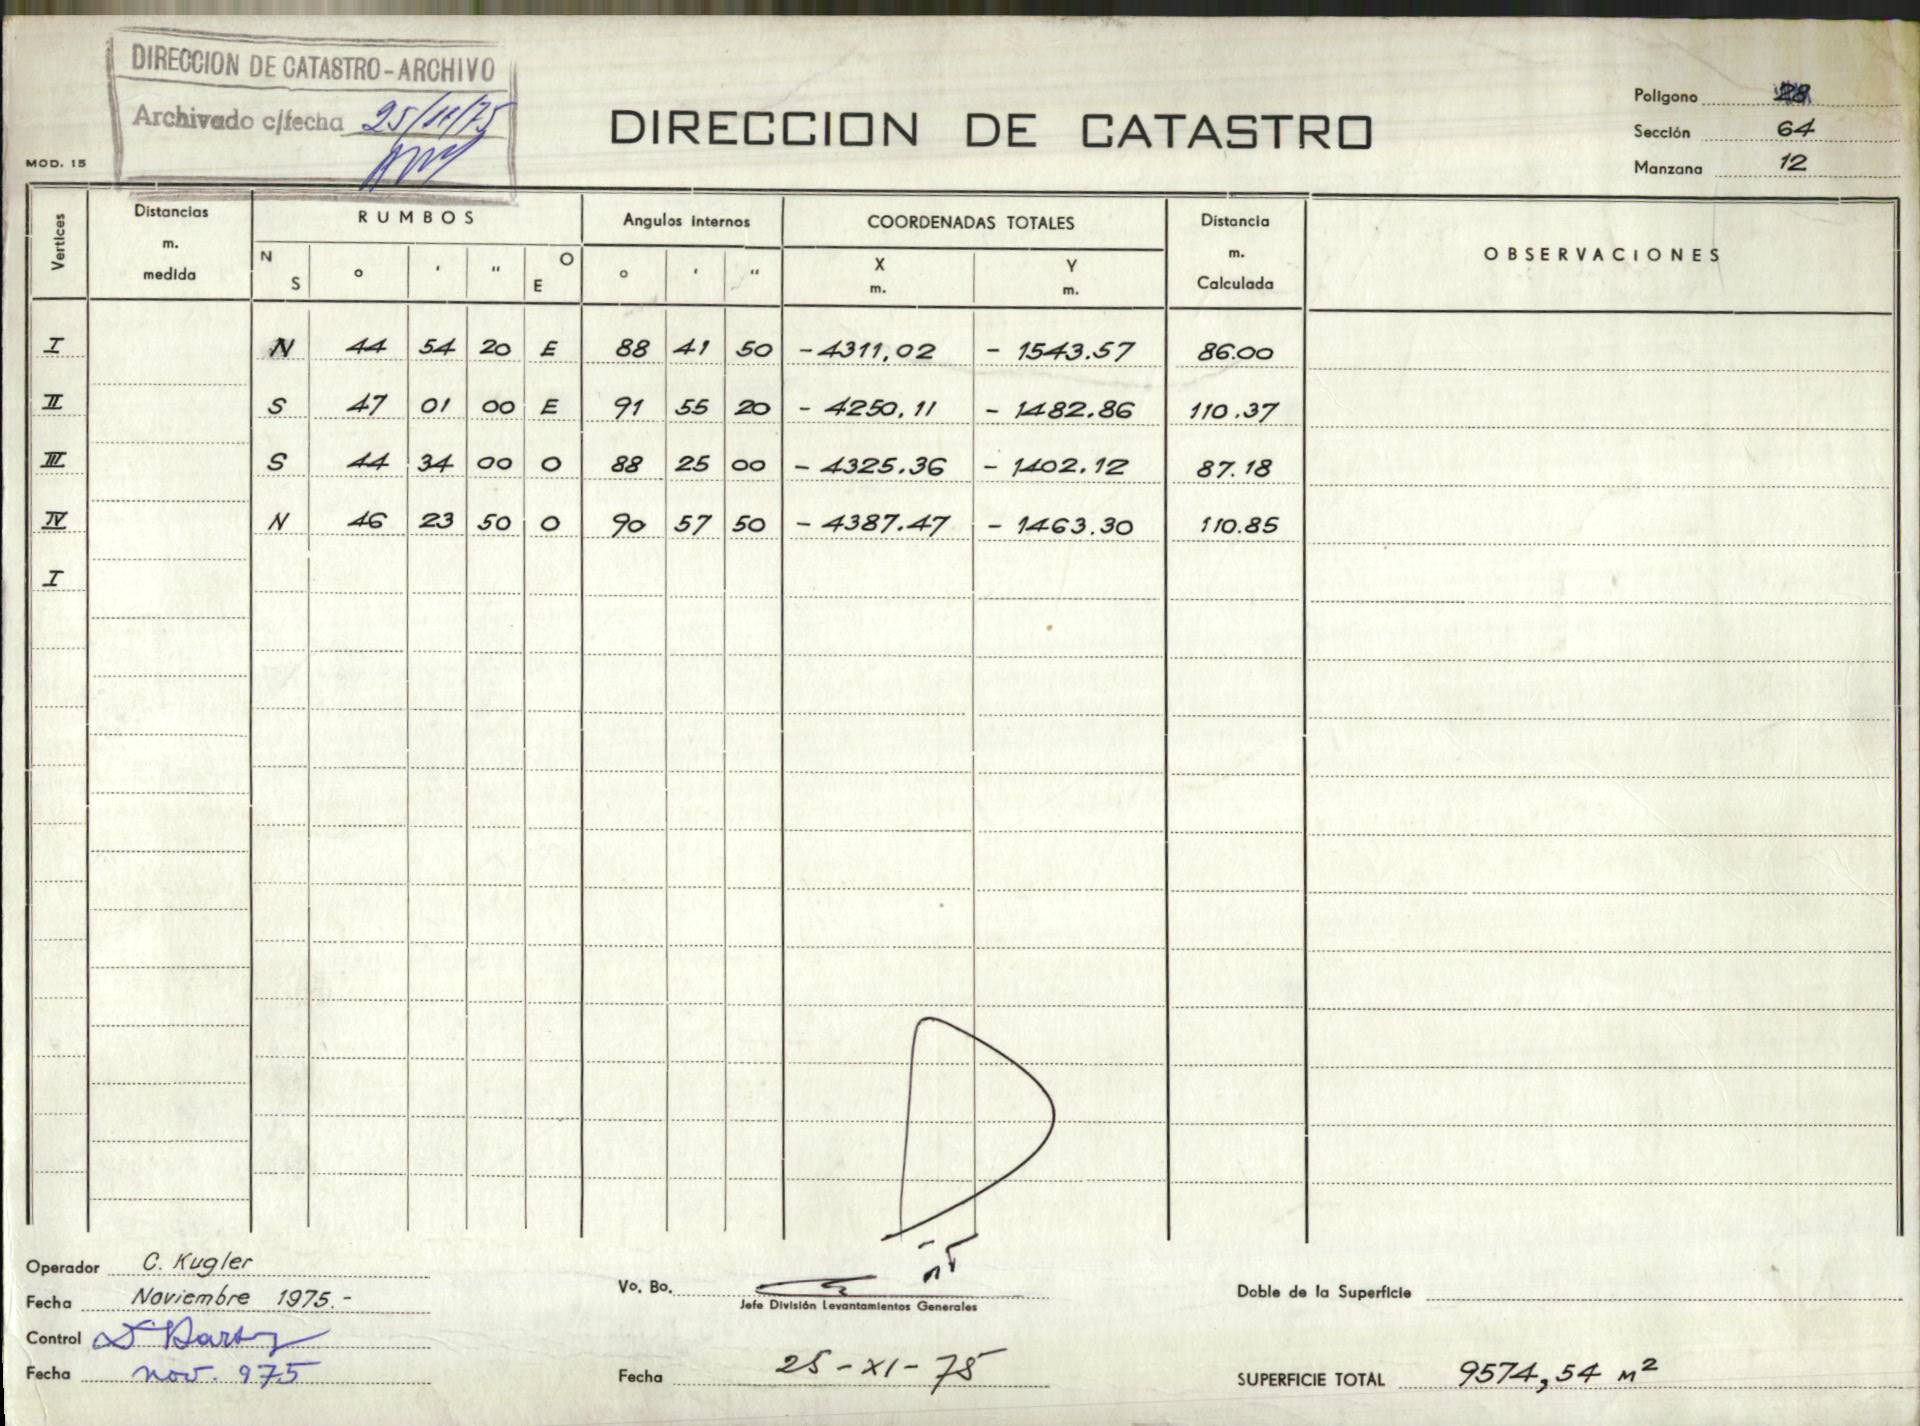 DIRECCION DE CATASTRO-ARCHIVO
Archivado c/fecha 25/11/75
MOD. 15
DIRECCION DE CATASTRO
Poligono
Sección 64
Manzana 12
Vertices Distancias m. medida RUMBOS Angulos internos COORDENADAS TOTALES Distancia m. Calculada OBSERVACIONES
N S ° ' " O E ° ' " X m. Y m.
I N 44 54 20 E 88 41 50 -4311,02 - 1543.57 86.00
II S 47 01 00 E 91 55 20 - 4250.11 - 1482.86 110.37
III S 44 34 00 O 88 25 00 - 4325.36 - 1402.12 87.18
IV N 46 23 50 O 90 57 50 - 4387.47 - 1463.30 110.85
I
Operador C. Kugler
Fecha Noviembre 1975.-
Control
Fecha nov. 975
Vo. Bo.
Jefe División Levantamientos Generales
Fecha 25-XI-75
Doble de la Superficie
SUPERFICIE TOTAL 9574,54 M²